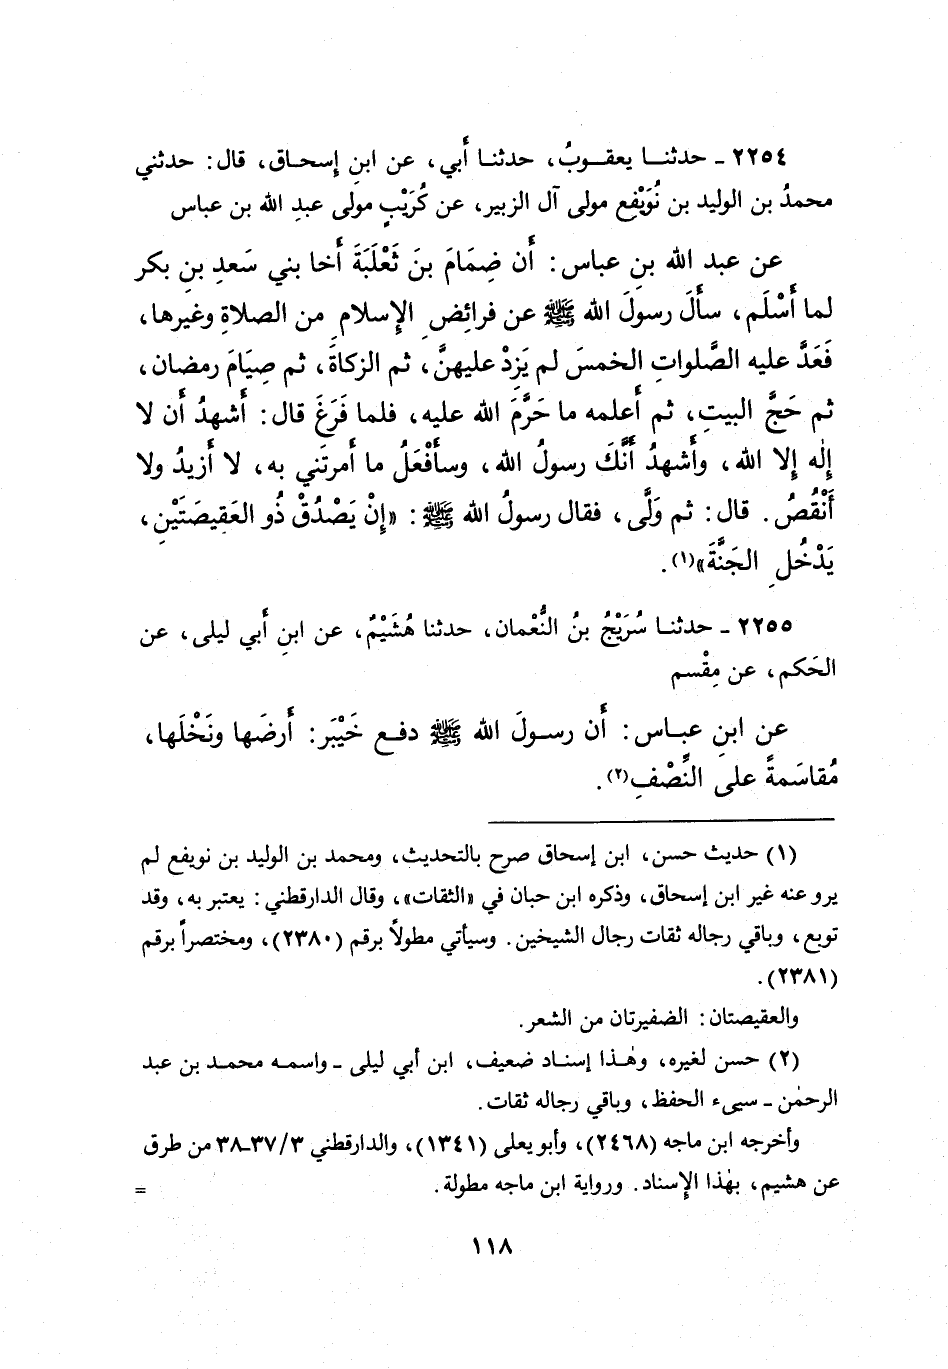 ٢٢٥٤ ـ حدثنا يعقوبُ، حدثنا أَبي، عن ابنِ إسحاق، قال: حدثني
محمدُ بن الوليد بن نُوَيْفِع مولى آل الزبير، عن كُرَيْبٍ مولى عبدِ الله بن عباس
عن عبد الله بنِ عباس: أَن ضِمَامَ بنَ ثَعْلَبَةَ أَخا بني سَعدِ بنِ بكر
لما أَسْلَم، سأَلَ رسولَ الله ﷺ عن فرائِضِ الإِسلامِ من الصلاةِ وغيرها،
فَعَدَّ عليه الصَّلواتِ الخمسَ لم يَزِدْ عليهنَّ، ثم الزكاةَ، ثم صِيَامَ رمضان،
ثم حَجَّ البيتِ، ثم أَعلمه ما حَرَّمَ الله عليه، فلما فَرَغَ قال: أَشهدُ أَن لا
إِلٰه إِلا الله، وأَشهدُ أَنَّكَ رسولُ الله، وسأَفْعَلُ ما أَمرتَني به، لا أَزيدُ ولا
أَنْقُصُ. قال: ثم وَلَّى، فقال رسولُ الله ﷺ: «إِنْ يَصْدُقْ ذُو العَقِيصَتَيْنِ،
يَدْخُلِ الجَنَّةَ»(١).
٢٢٥٥ ـ حدثنا سُرَيْجُ بنُ النُّعْمان، حدثنا هُشَيْمٌ، عن ابنِ أَبي ليلى، عن
الحَكم، عن مِقْسم
عن ابنِ عباس: أَن رسولَ الله ﷺ دفع خَيْبَر: أَرضَها ونَخْلَها،
مُقاسَمةً على النِّصْفِ(٢).
(١) حديث حسن، ابن إسحاق صرح بالتحديث، ومحمد بن الوليد بن نويفع لم
يرو عنه غير ابن إسحاق، وذكره ابن حبان في «الثقات»، وقال الدارقطني: يعتبر به، وقد
توبع، وباقي رجاله ثقات رجال الشيخين. وسيأتي مطولاً برقم (٢٣٨٠)، ومختصراً برقم
(٢٣٨١).
والعقيصتان: الضفيرتان من الشعر.
(٢) حسن لغيره، وهٰذا إسناد ضعيف، ابن أبي ليلى ـ واسمه محمد بن عبد
الرحمٰن ـ سيىء الحفظ، وباقي رجاله ثقات.
وأخرجه ابن ماجه (٢٤٦٨)، وأبو يعلى (١٣٤١)، والدارقطني ٣/٣٧ـ٣٨ من طرق
عن هشيم، بهٰذا الإسناد. ورواية ابن ماجه مطولة.
=
١١٨